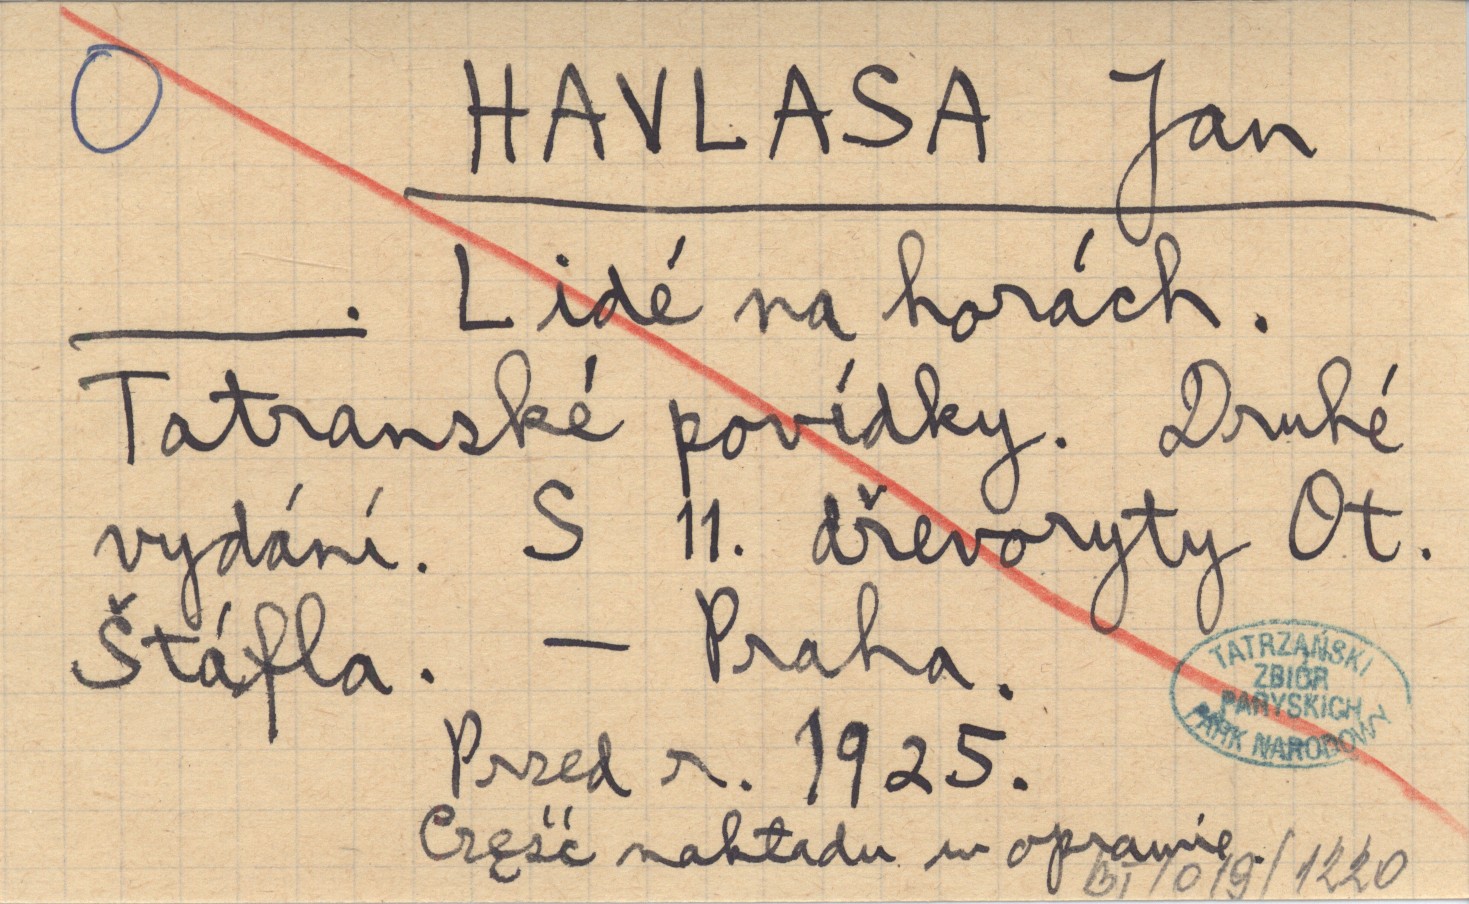 HAVLASA Jan
. Lidé na horách.
Tatranské povídky. Druhé
vydání. S 11. dřevoryty Ot.
Štáfla. — Praha.
Przed r. 1925.
Część nakładu w oprawie.
TATRZAŃSKI
ZBIÓR
PARYSKICH
PARK NARODOWY
BT/019/1220